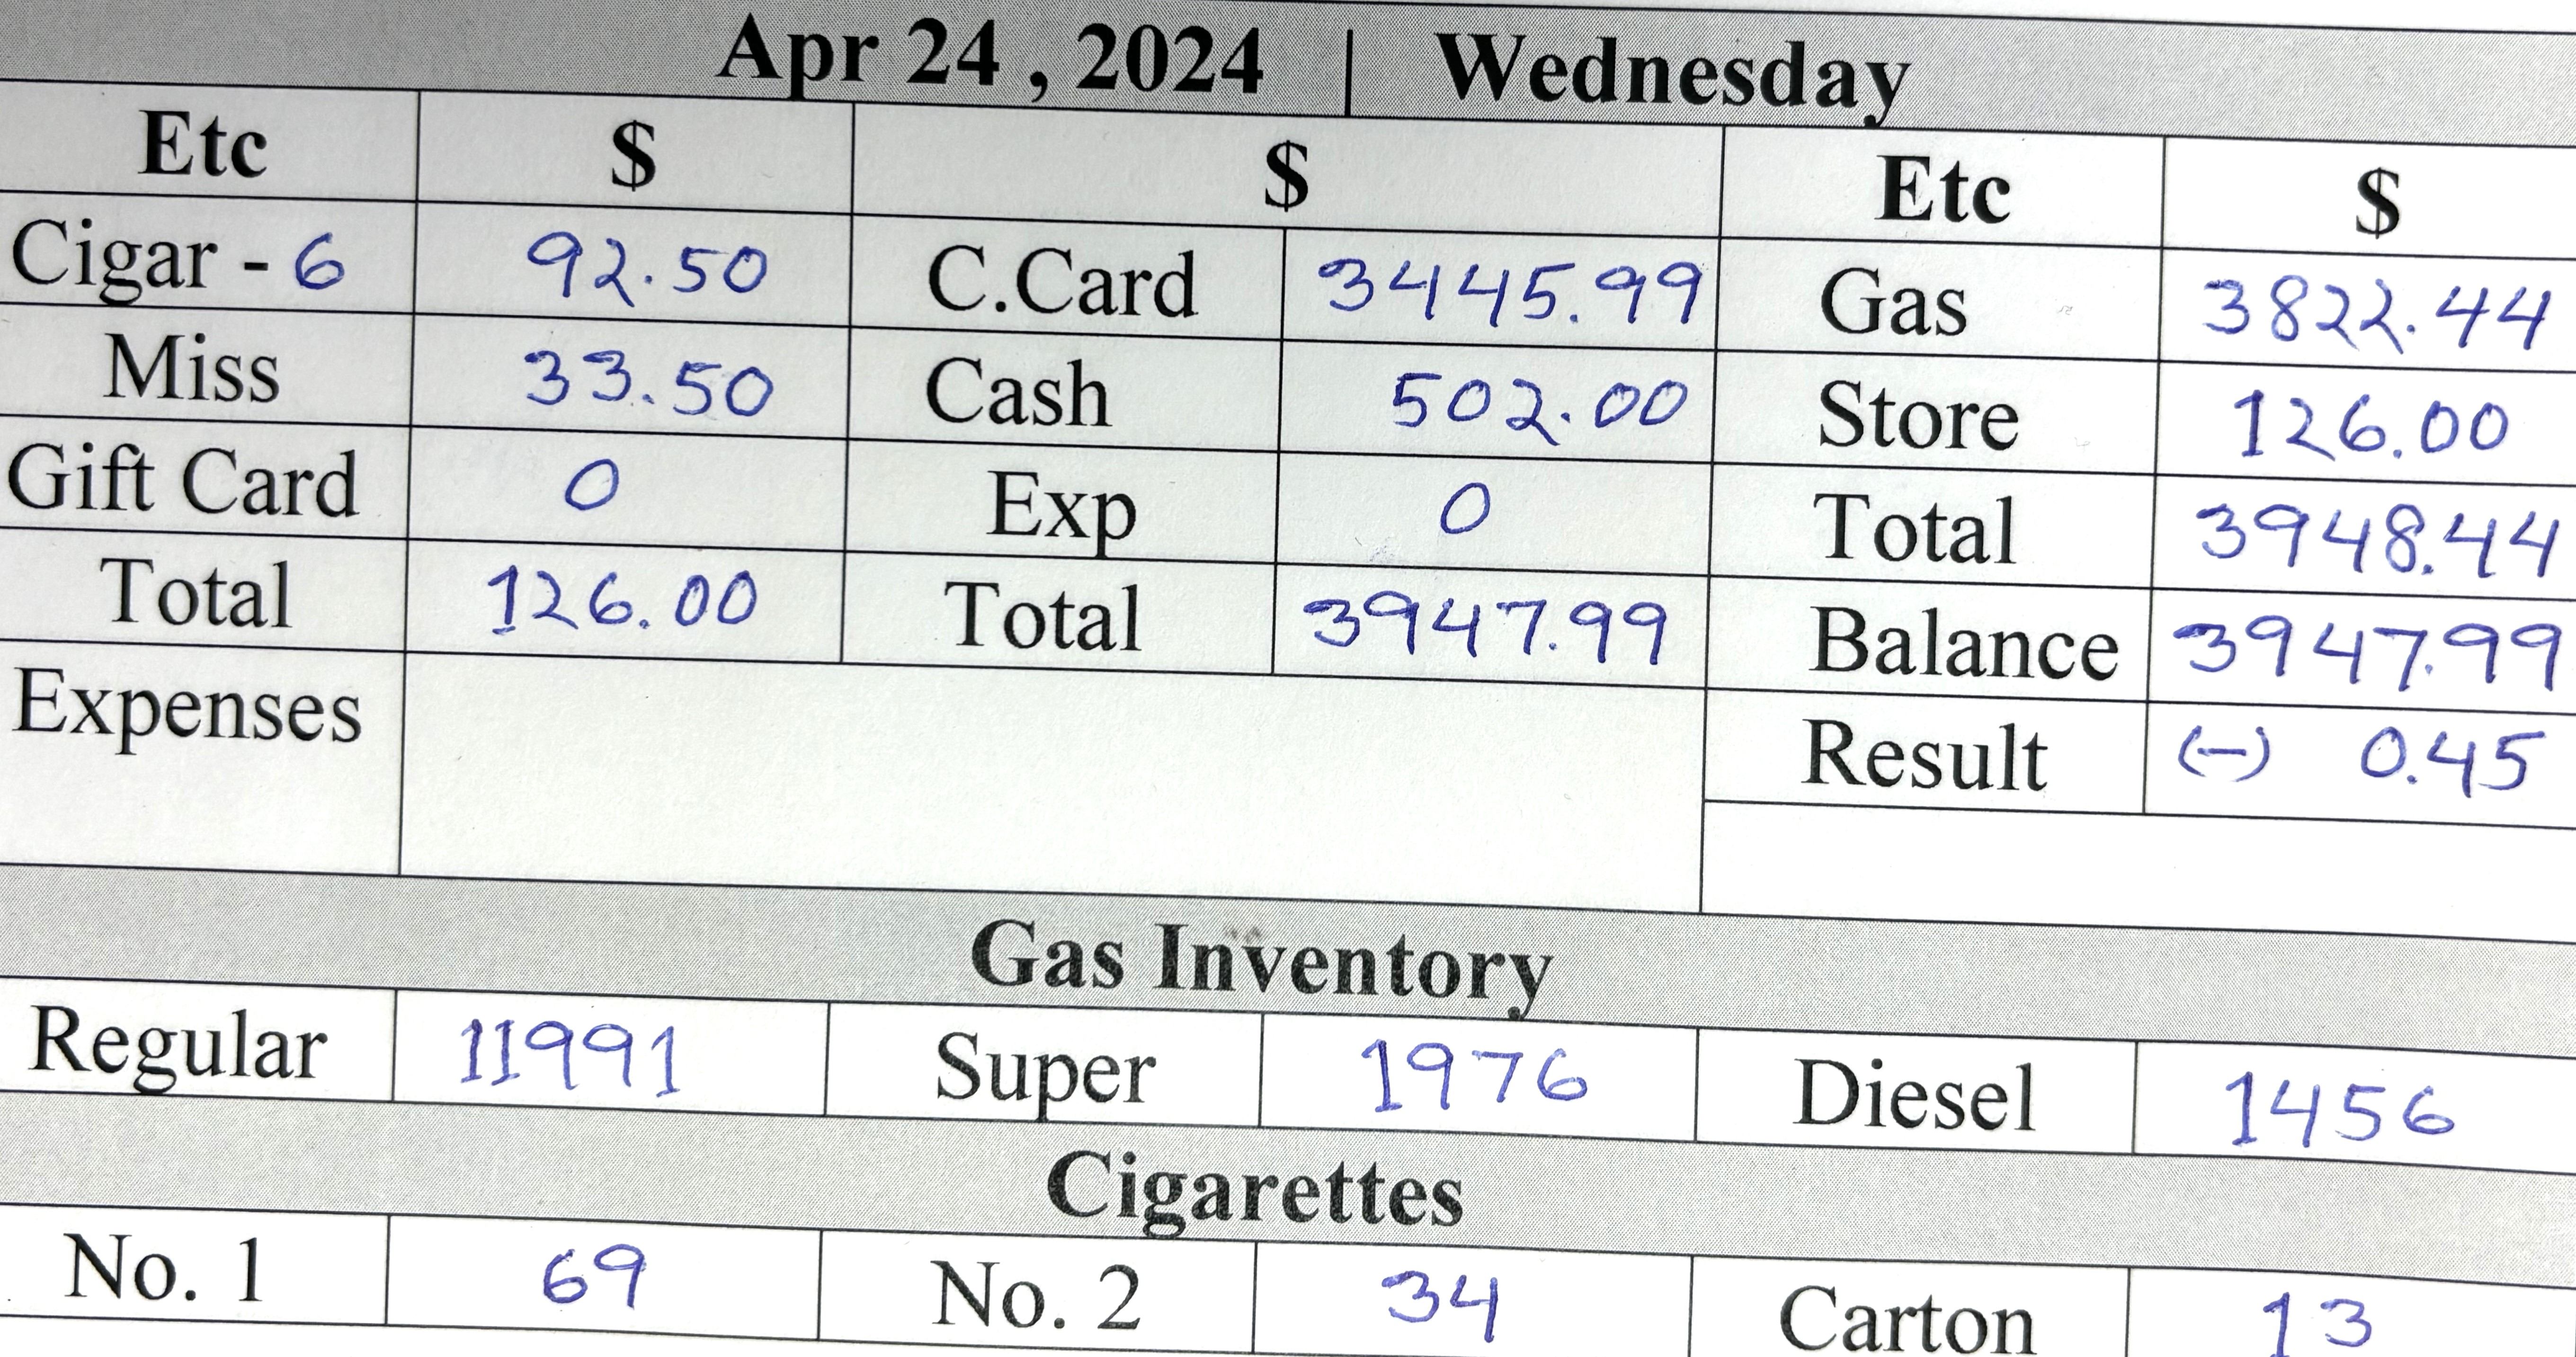 Apr 24 , 2024 | Wednesday
Etc $ $ Etc $
Cigar - 6 92.50 C.Card 3445.99 Gas 3822.44
Miss 33.50 Cash 502.00 Store 126.00
Gift Card 0 Exp 0 Total 3948.44
Total 126.00 Total 3947.99 Balance 3947.99
Expenses Result (-) 0.45
Gas Inventory
Regular 11991 Super 1976 Diesel 1456
Cigarettes
No. 1 69 No. 2 34 Carton 13